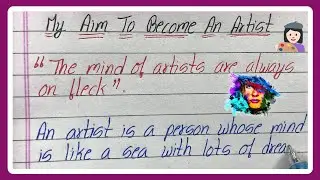 My Aim To Become An Artist
"The mind of artists are always
on fleck".
An artist is a person whose mind
is like a sea with lots of drea